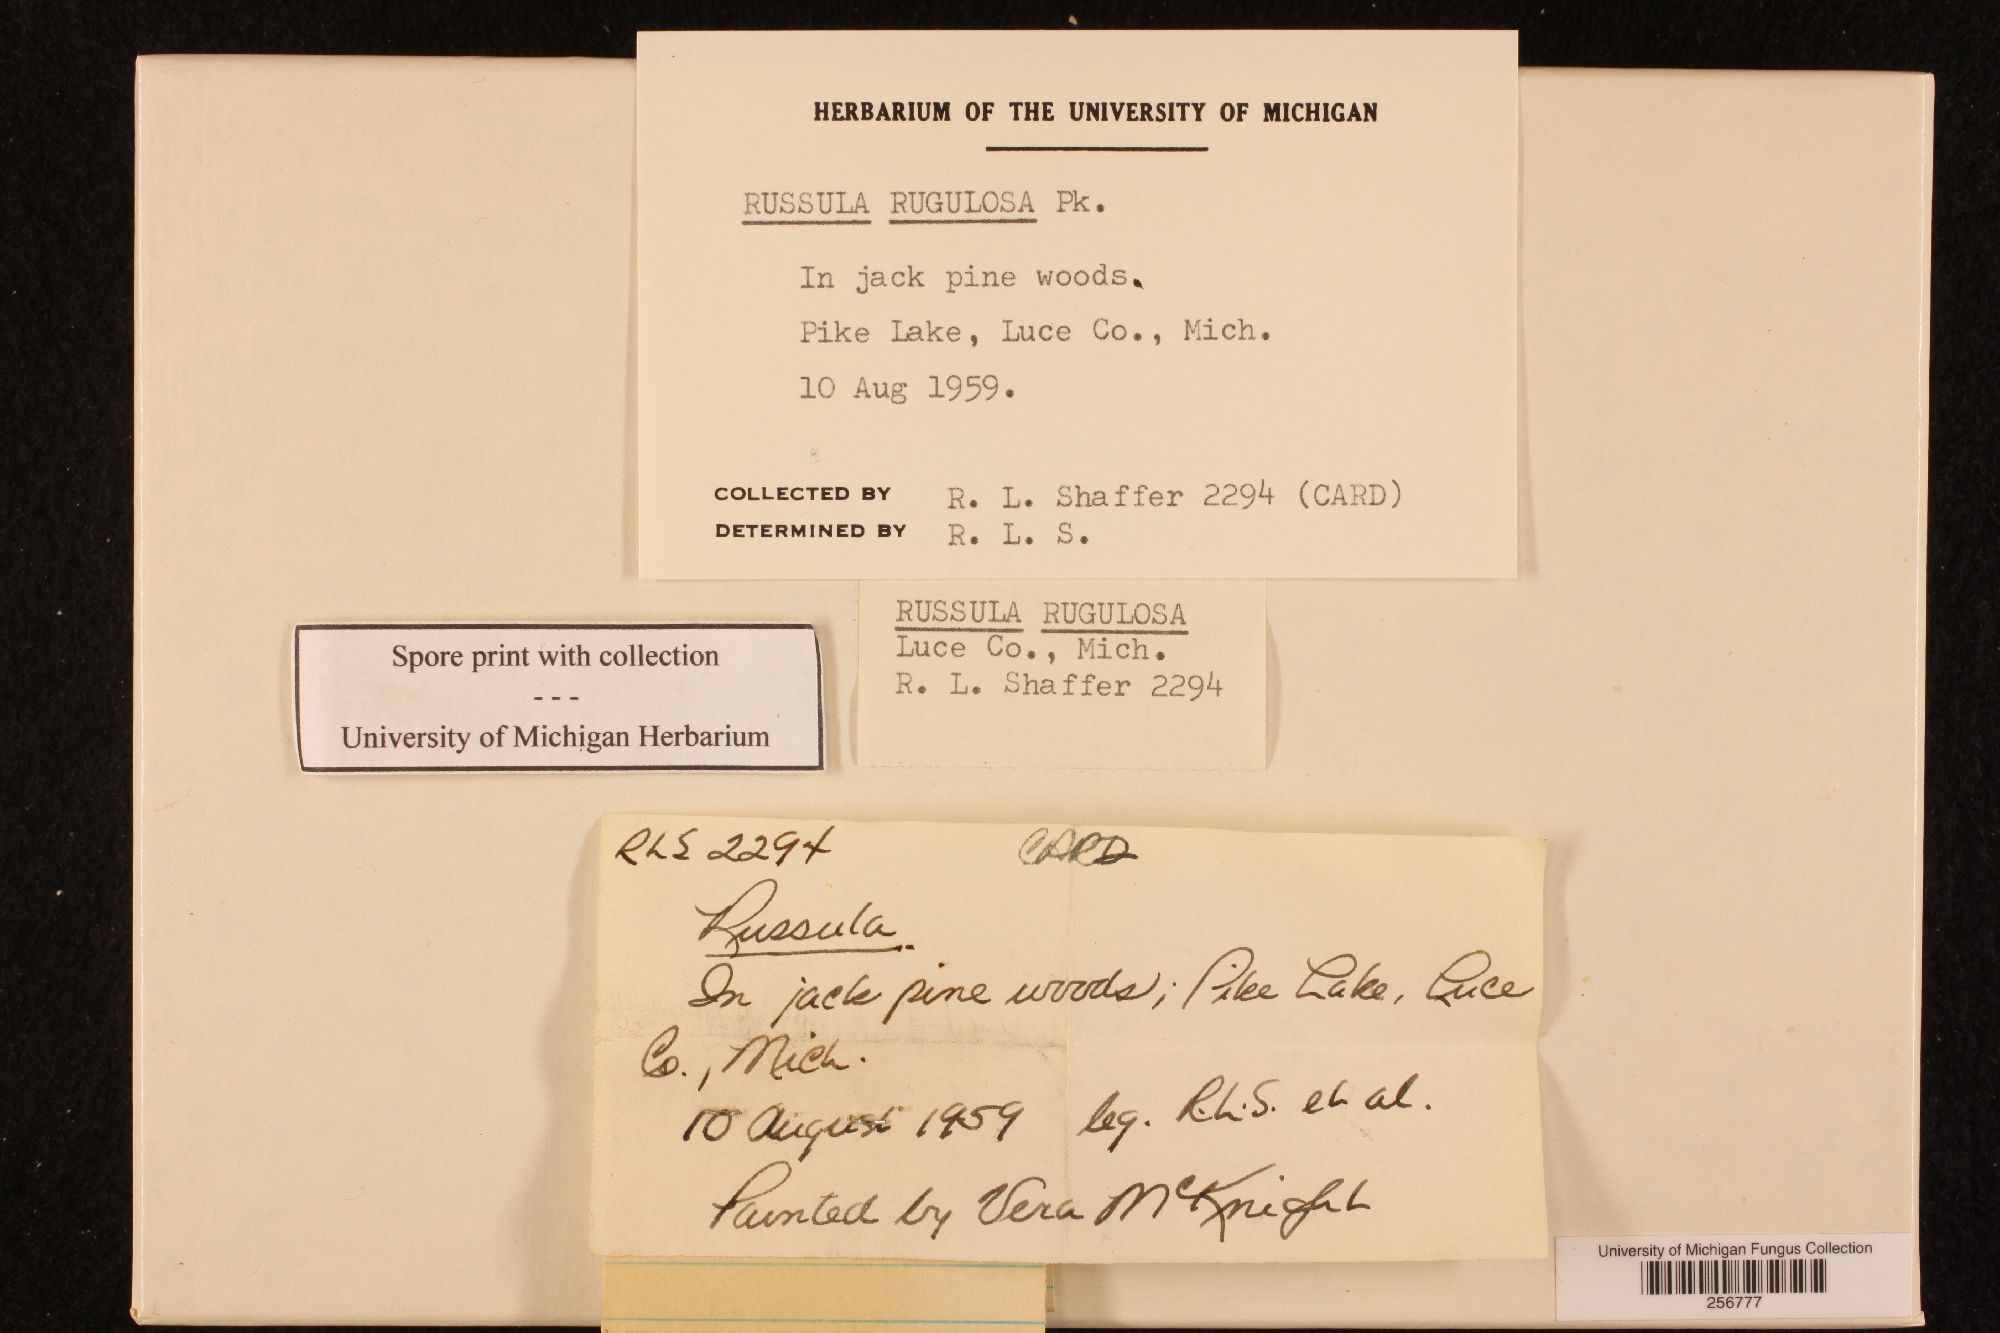 HERBARIUM OF THE UNIVERSITY OF MICHIGAN
RUSSULA RUGULOSA Pk.
In jack pine woods.
Pike Lake, Luce Co., Mich.
10 Aug 1959.
COLLECTED BY R. L. Shaffer 2294 (CARD)
DETERMINED BY R. L. S.
RUSSULA RUGULOSA
Luce Co., Mich.
R. L. Shaffer 2294
Spore print with collection
---
University of Michigan Herbarium
RLS 2294 CARD
Russula
In jack pine woods; Pike Lake, Luce
Co., Mich.
10 August 1959 leg. R.L.S. et al.
Painted by Vera McKnight
University of Michigan Fungus Collection
256777